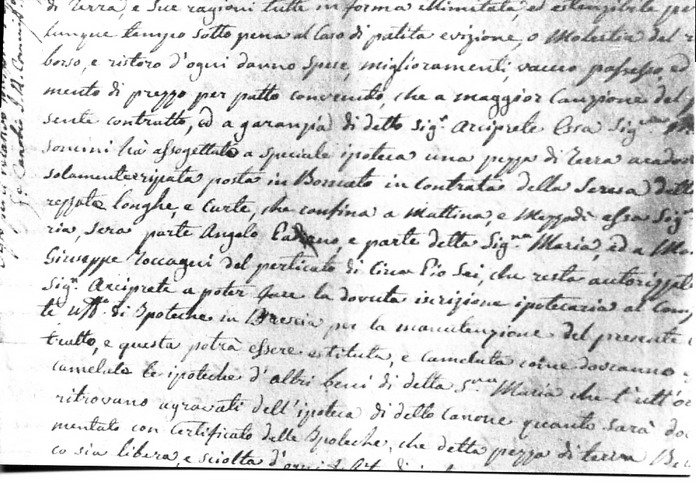 di Terra, e sue ragioni tutte in forma illimitata, ed estensibile per
lunque tempo sotto pena al Caso di patita evizione, o Molestia del r
borso, e ristoro d'ogni danno Spese, miglioramenti, vacuo possesso, ed
mento di prezzo per patto convenuto, che a maggior Cauzione del p
sente contratto, ed a garanzia di detto Sig.r Arciprete Essa Sig.ra
Soncini hà assogettato a Speciale ipoteca una pezza di Terra arador
solamente ripata posta in Bornato in Contrata della Seresa dett
rozzate longhe, e Curte, che confina a Mattina, e Mezzodì essa Sig
ria, Sera parte Angelo, e parte detta Sig.na Maria, ed a Mo
Giuseppe del perticato di Circa Pio Sei, che resta autorizzat
Sig.r Arciprete a poter fare la dovuta iscrizione ipotecaria al Com
te di Ipoteche in Brescia per la manutenzione del presente C
tratto, e questa potrà essere, e camelata come dovranno
camelate le ipoteche d'altri beni di detta S.ra Maria che
ritrovano agravati dell'ipoteca di detto Canone quanto sarà do
mentato con Certificato delle Ipoteche, che detta pezza di terra Be
co sia libera, e sciolta d'ogni